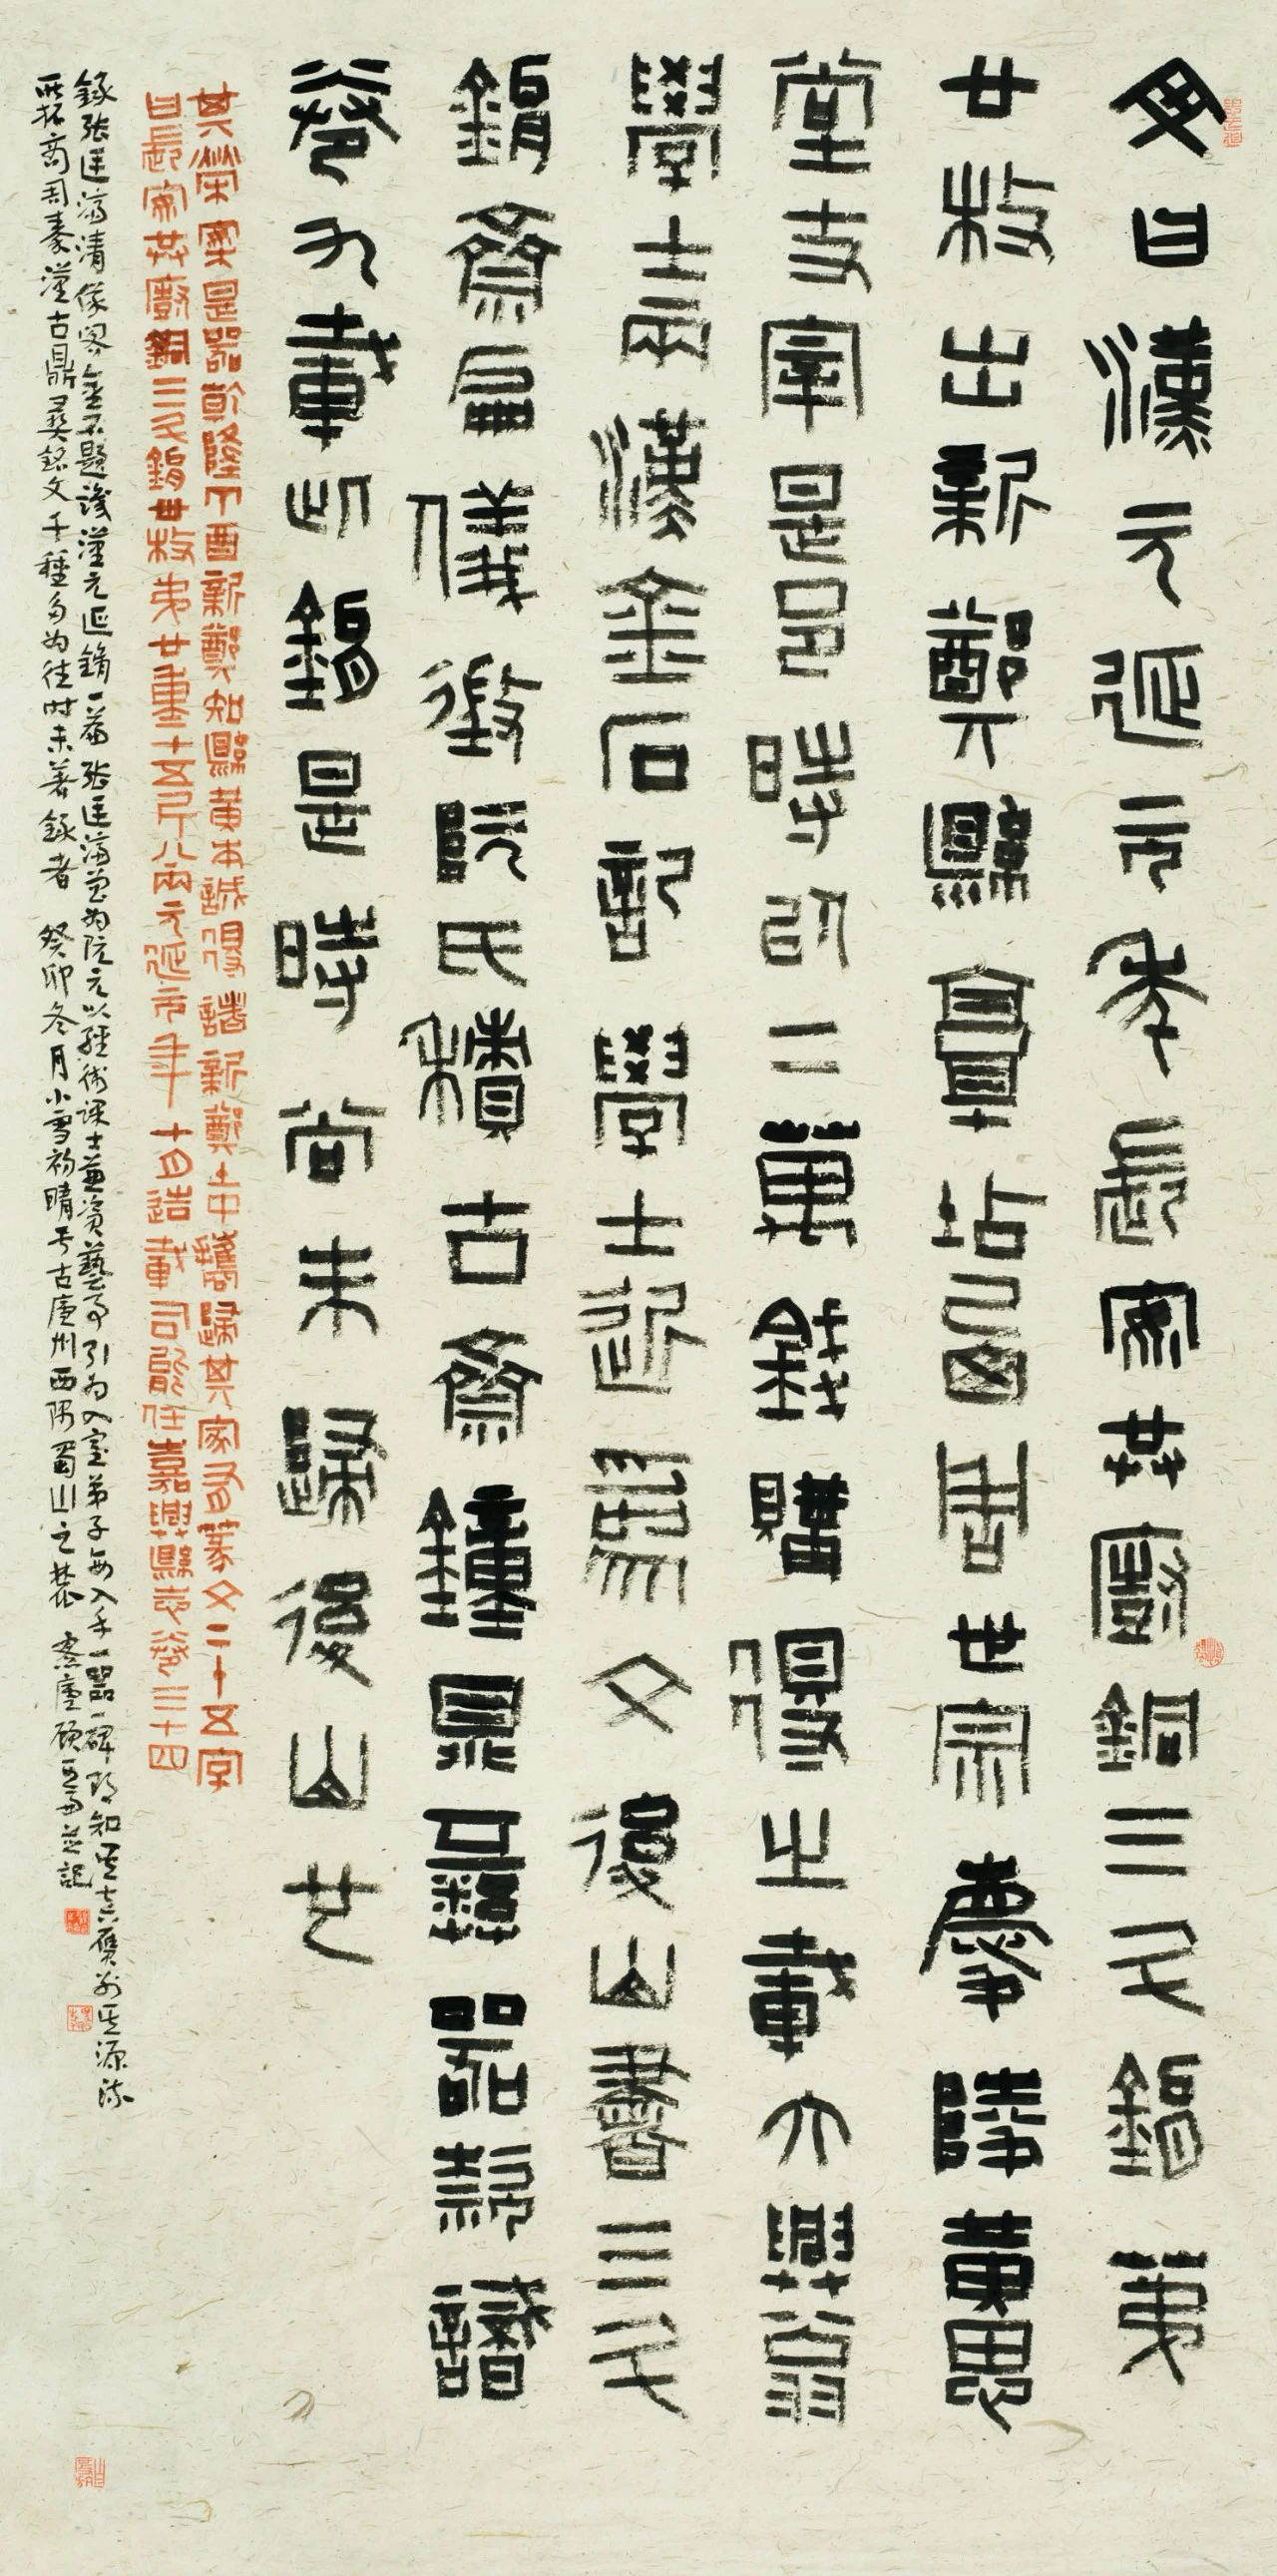 文曰漢元延元年長安共廚銅三斗鋗弟
廿枚出新鄭縣質坫臣周世宗慶陵黃思
堂支宰是邑時以二萬錢購得之載大興翁
學士兩漢金石記學士跋為文後山書三斗
鋗齋扁儀徵阮氏積古齋鐘鼎彝器款識
卷九載此鋗是時尚未歸後山也
其榮案是器乾隆丁酉新鄭知縣黃本誠得諸新鄭土中攜歸其家有篆文二十五字
曰長安共廚銅三斗鋗廿枚弟廿重十五斤八兩元延元年十月造載司能任嘉興縣志卷三十四
錄張廷濟清儀閣金石題識漢元延鋗一篇張廷濟曾為阮元以經術課士並資藝事引為入室弟子每入手一器一碑動知其真贗別其源流
所拓商周秦漢古鼎彝銘文千種多為往時未著錄者 癸卯冬月小雪初晴於古廬州西隅蜀山之麓